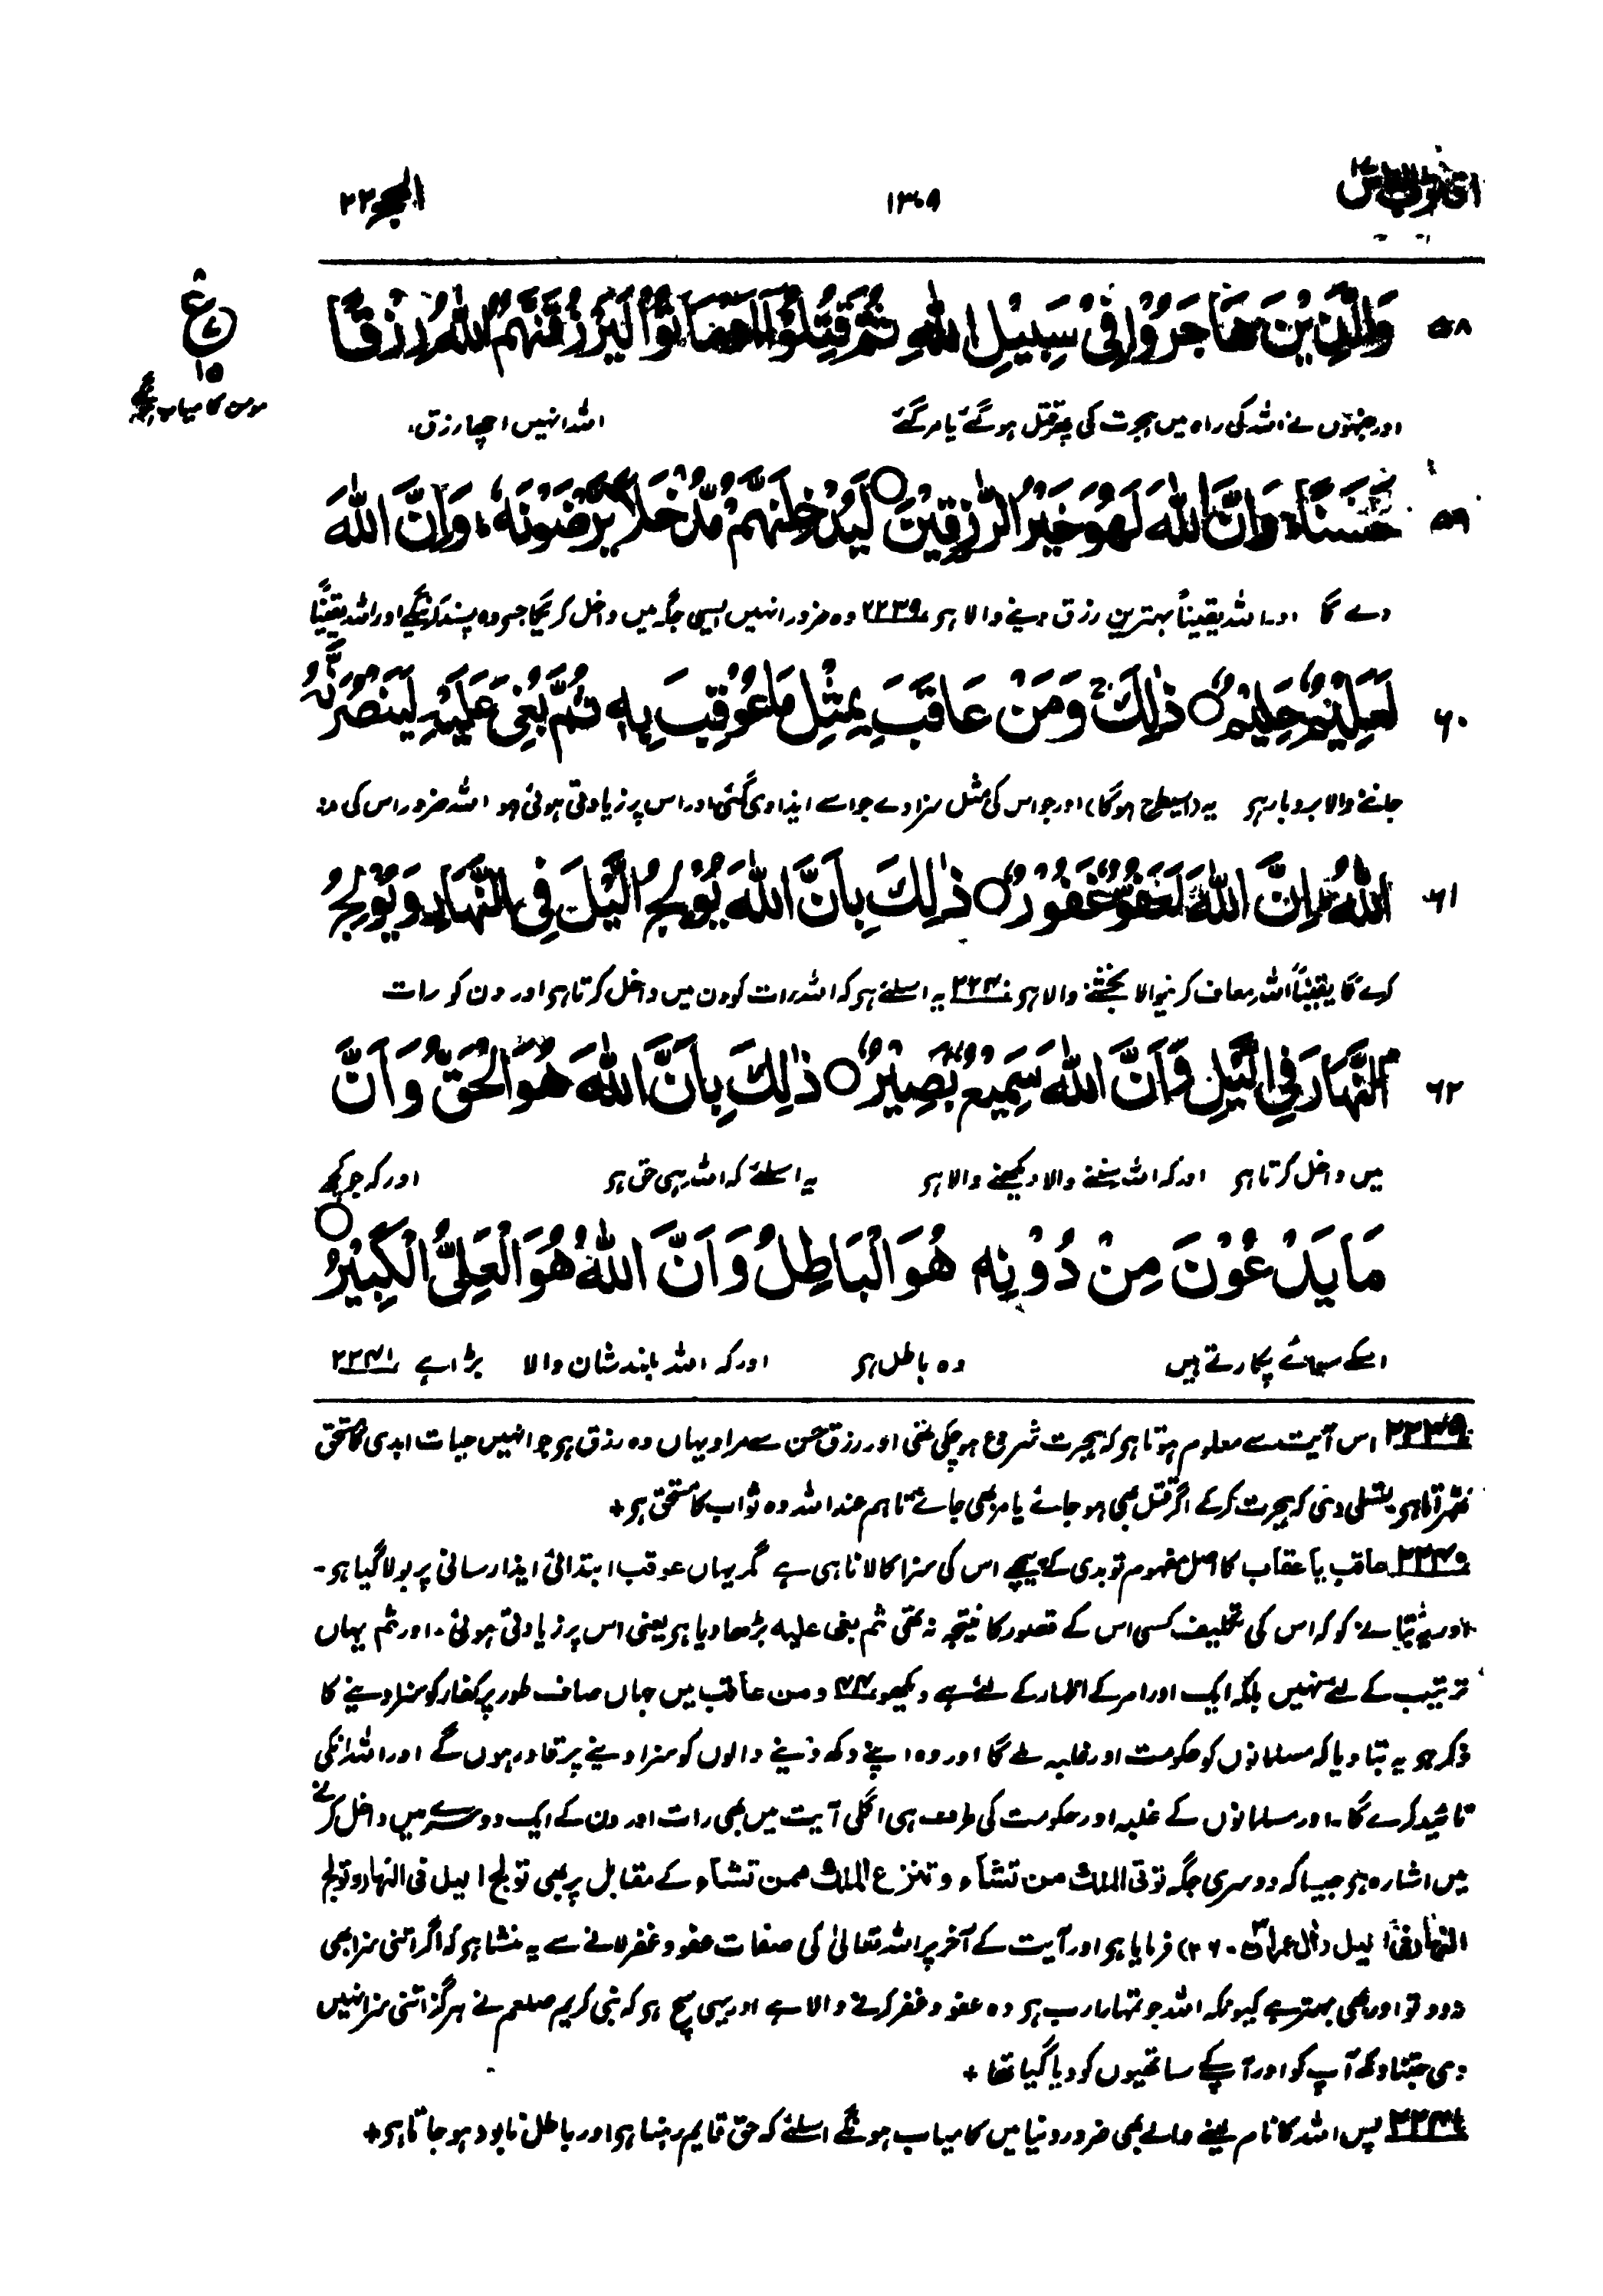 اقترب للناس ۱۷
۱۳۰۹
الحج ۲۲
ع
۸
۷
۱۵
مومن کامیاب ہونگے
۵۸ وَالَّذِیْنَ هَاجَرُوْا فِیْ سَبِیْلِ اللّٰهِ ثُمَّ قُتِلُوْۤا اَوْ مَاتُوْا لَیَرْزُقَنَّهُمُ اللّٰهُ رِزْقًا
اور جنہوں نے اللہ کی راہ میں ہجرت کی پھر قتل ہو گئے یا مر گئے اللہ انہیں اچھا رزق
۵۹ حَسَنًا ؕ وَاِنَّ اللّٰهَ لَهُوَ خَیْرُ الرّٰزِقِیْنَ ○ لَیُدْخِلَنَّهُمْ مُّدْخَلًا یَّرْضَوْنَهٗ ؕ وَاِنَّ اللّٰهَ
دے گا اور اللہ یقیناً بہترین رزق دینے والا ہی ۲۲۳۹ وہ ضرور انہیں ایسی جگہ میں داخل کریگا جسے وہ پسند کرینگے اور اللہ یقیناً
۶۰ لَعَلِیْمٌ حَلِیْمٌ ○ ذٰلِكَ ۚ وَمَنْ عَاقَبَ بِمِثْلِ مَا عُوْقِبَ بِهٖ ثُمَّ بُغِیَ عَلَیْهِ لَیَنْصُرَنَّهُ
جاننے والا بردبار ہی یہ (اسیطرح ہوگا) اور جو اس کی مثل سزا دے جو اسے ایذا دی گئی اور اس پر زیادتی ہوئی ہو اللہ ضرور اس کی مدد
۶۱ اللّٰهُ ؕ اِنَّ اللّٰهَ لَعَفُوٌّ غَفُوْرٌ ○ ذٰلِكَ بِاَنَّ اللّٰهَ یُوْلِجُ الَّیْلَ فِی النَّهَارِ وَیُوْلِجُ
کرے گا یقیناً اللہ معاف کرنیوالا بخشنے والا ہی ۲۲۴۰ یہ اسلئے ہی کہ اللہ رات کو دن میں داخل کرتا ہی اور دن کو رات
۶۲ النَّهَارَ فِی الَّیْلِ وَاَنَّ اللّٰهَ سَمِیْعٌۢ بَصِیْرٌ ○ ذٰلِكَ بِاَنَّ اللّٰهَ هُوَ الْحَقُّ وَاَنَّ
میں داخل کرتا ہی اور کہ اللہ سننے والا دیکھنے والا ہی یہ اسلئے کہ اللہ ہی حق ہی اور کہ جو کچھ
مَا یَدْعُوْنَ مِنْ دُوْنِهٖ هُوَ الْبَاطِلُ وَاَنَّ اللّٰهَ هُوَ الْعَلِیُّ الْكَبِیْرُ ○
اسکے سوائے پکارتے ہیں وہ باطل ہی اور کہ اللہ بلند شان والا بڑا ہے ۲۲۴۱
۲۲۳۹ اس آیت سے معلوم ہوتا ہی کہ ہجرت شروع ہو چکی تھی اور رزق حسن سے مراد یہاں وہ رزق ہی جو انہیں حیات ابدی کا مستحق
ٹھہراتا ہی۔ یہ تسلی دی کہ ہجرت کرکے اگر قتل بھی ہو جائے یا مر بھی جائے تاہم عند اللہ وہ ثواب کا مستحق ہی+
۲۲۴۰ عاقب یا عقاب کا اصل مفہوم تو بدی کے پیچھے اس کی سزا کا لانا ہی ہے گر یہاں عوقب ابتدائی ایذا رسانی پر بولا گیا ہی۔
اور یہ بتانے کو کہ اس کی تکلیف کسی اس کے قصور کا نتیجہ نہ تھی ثم بغی علیہ بڑھا دیا ہی یعنی اس پر زیادتی ہوئی۔ اور ثم یہاں
ترتیب کے لئے نہیں بلکہ ایک اور امر کے اظہار کے لئے ہے دیکھو ۴۴ ومن عاقب میں جہاں صاف طور پر کفار کو سزا دینے کا
ذکر ہی یہ بتا دیا کہ مسلمانوں کو حکومت اور غلبہ ملے گا اور وہ اپنے دکھ دینے والوں کو سزا دینے پر قادر ہوں گے اور اللہ انکی
تائید کرے گا۔ اور مسلمانوں کے غلبہ اور حکومت کی طرف ہی اگلی آیت میں بھی رات اور دن کے ایک دوسرے میں داخل کرنے
میں اشارہ ہی جیسا کہ دوسری جگہ تؤتی الملك من تشاء وتنزع الملك ممن تشاء کے مقابل پر بھی تولج الیل فی النهار وتولج
النهار فی الیل (اٰل عمرانؔ ۳۔۲۶) فرمایا ہی اور آیت کے آخر پر اللہ تعالیٰ کی صفات عفو و غفر لانے سے یہ منشا ہی کہ اگر اتنی سزا بھی
نہ دو تو اور بھی بہتر ہے کیونکہ اللہ جو تمہارا رب ہی وہ عفو و غفر کرنے والا ہے اور یہی سچ ہی کہ نبی کریم صلعم نے ہرگز اتنی سزا نہیں
دی جتنا دکھ آپ کو اور آپ کے ساتھیوں کو دیا گیا تھا +
۲۲۴۱ پس اللہ کا نام لینے والے بھی ضرور دنیا میں کامیاب ہونگے اسلئے کہ حق قایم رہتا ہی اور باطل نابود ہو جاتا ہی+